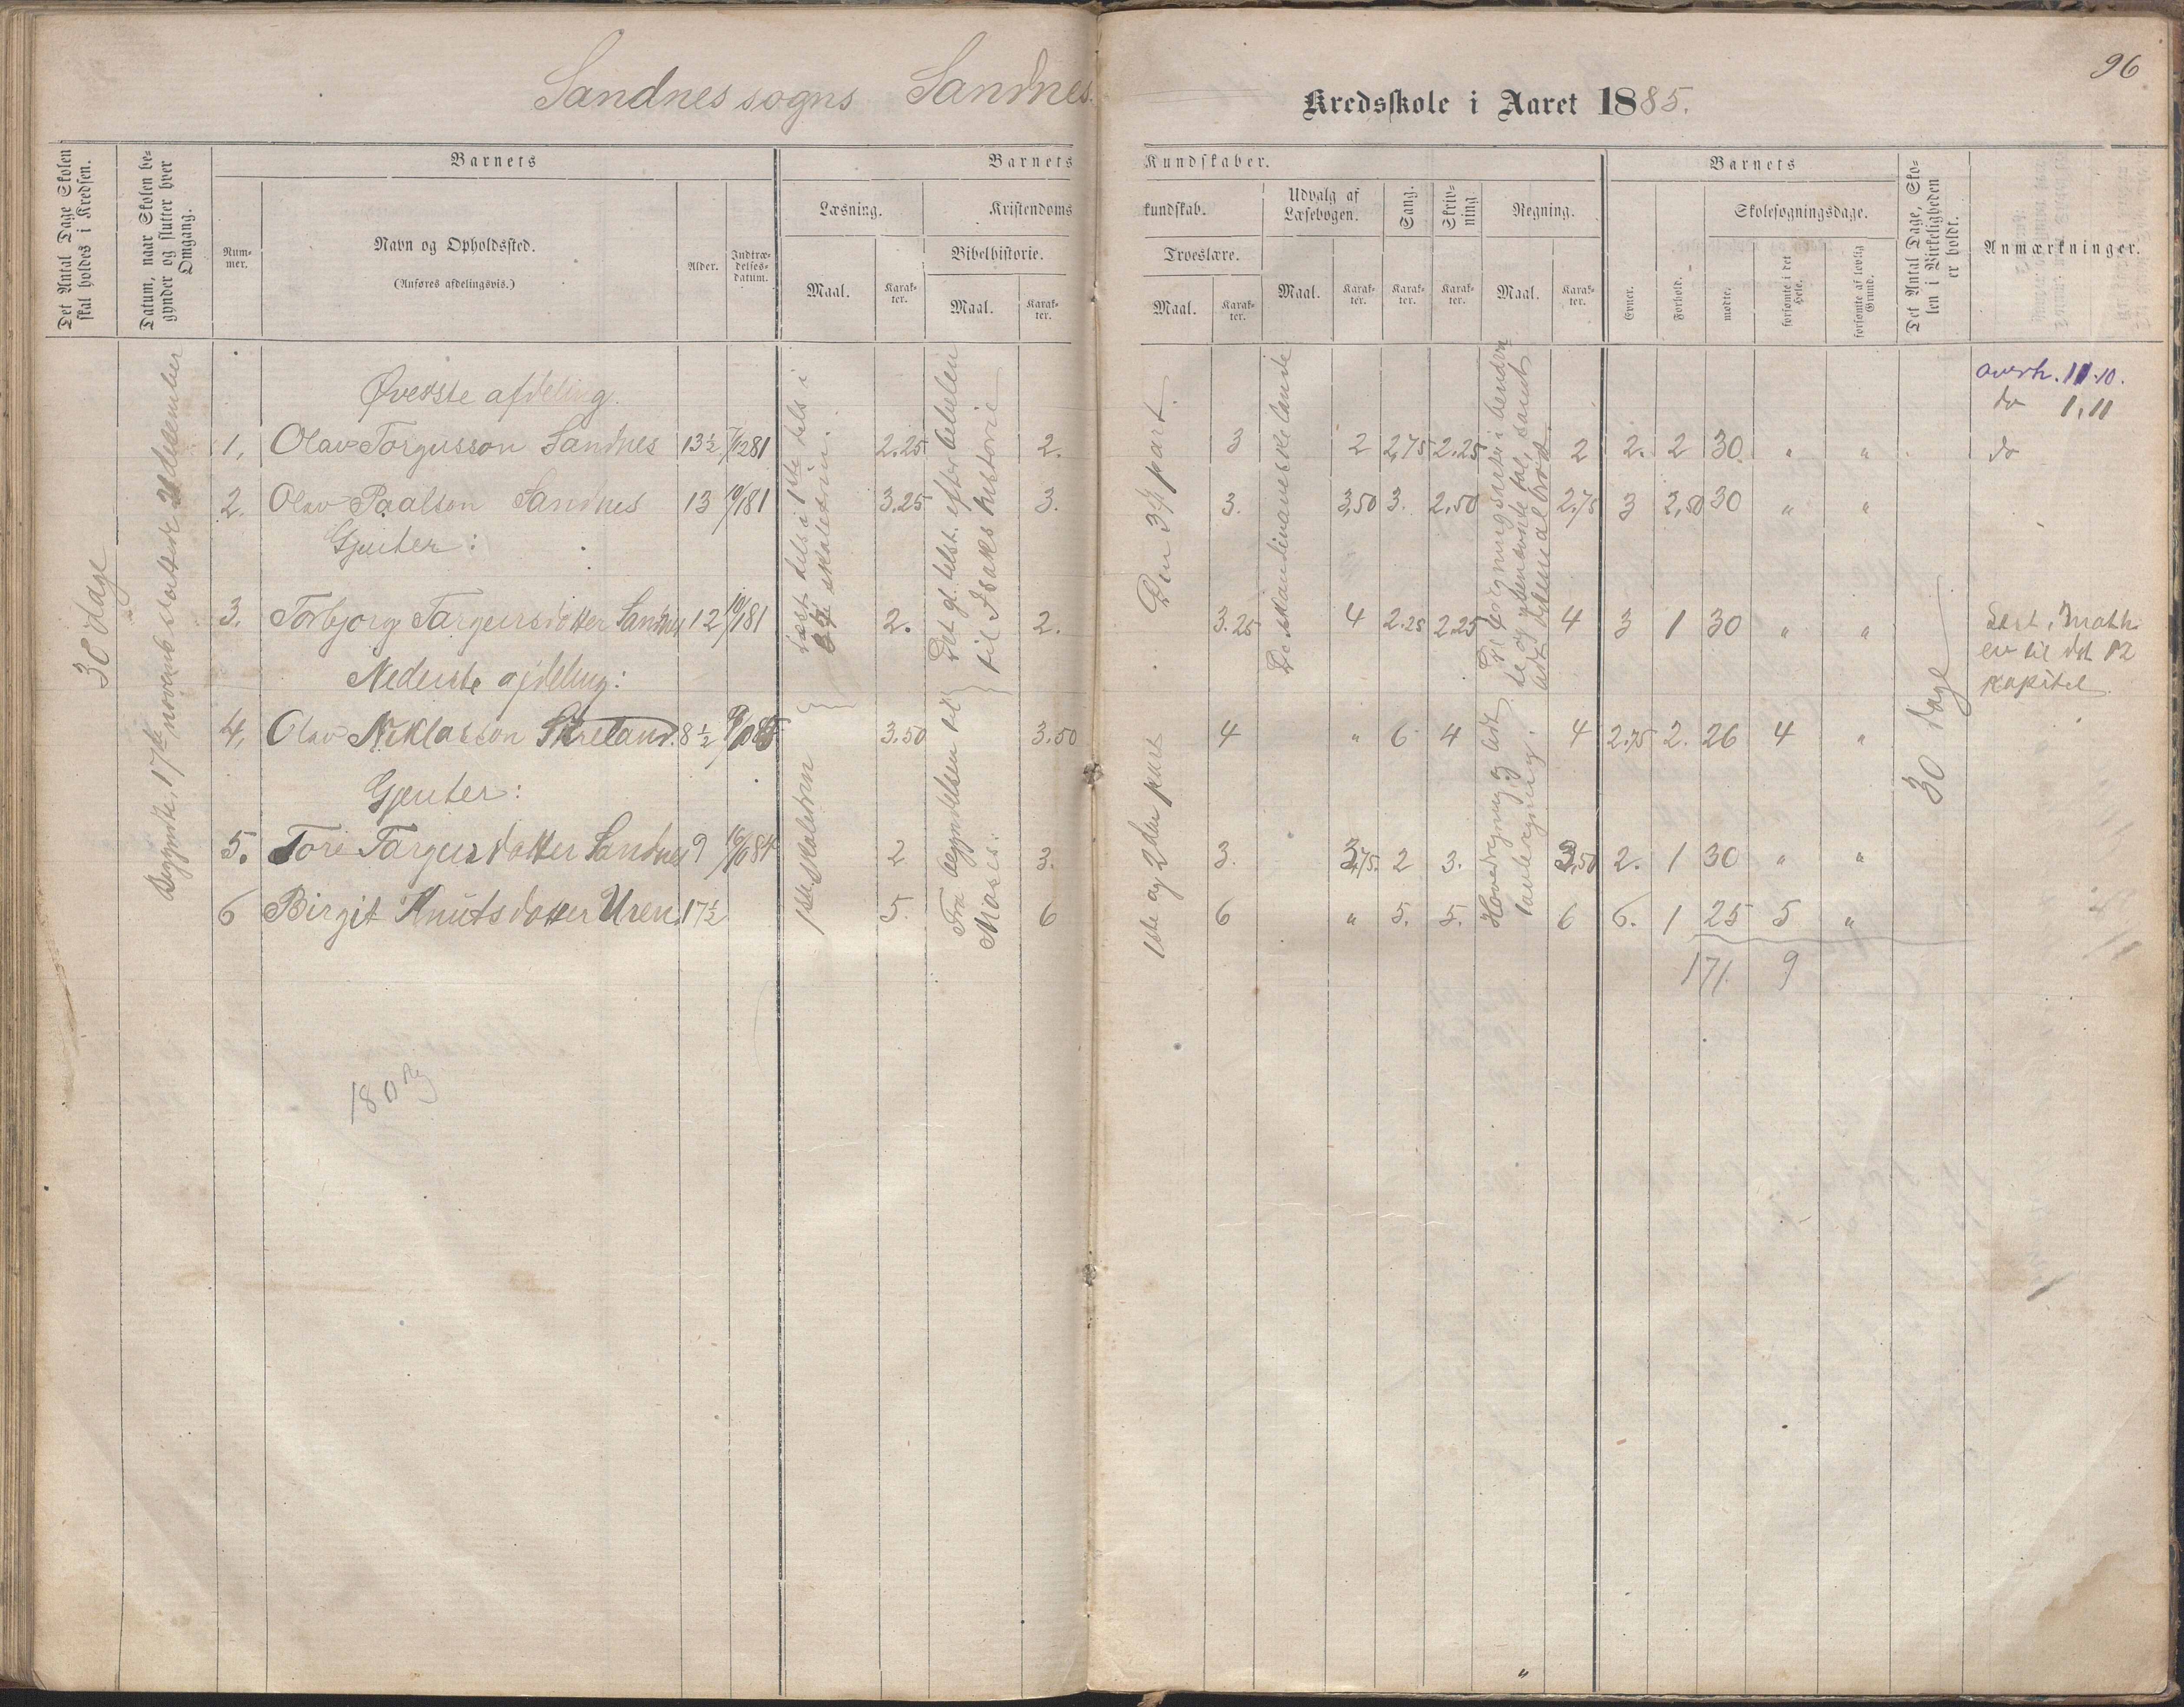 96
Sandnes sogns Sandnes. Kredsskole i Aaret 1885.
Det Antal Dage Skolen skal holdes i Kredsen.
Datum, naar Skolen begynder og slutter hver Omgang.
Barnets
Nummer.
Navn og Opholdssted.
(Anføres afdelingsvis.)
Alder.
Indtrædelsesdatum.
Barnets Kundskaber.
Læsning.
Maal.
Karakter.
Kristendomskundskab.
Bibelhistorie.
Maal.
Karakter.
Troeslære.
Maal.
Karakter.
Udvalg af Læsebogen.
Maal.
Karakter.
Sang.
Karakter.
Skrivning
Karakter.
Regning.
Maal.
Karakter.
Barnets
Evner.
Forhold.
Skolesøgningsdage.
mødte.
forsømte i det Hele.
forsømte af lovlig Grund.
Det Antal Dage, Skolen i Virkeligheden er holdt.
Anmærkninger.
30 dage
Begyndte, 17de november sluttede 21 desember
Øverste afdeling.
1, Olav Torgusson Sandnes 13½ 7/12 81 2.25 2. 3 2 2,75 2.25 2 2. 2 30 " "
2. Olav Paalson Sandnes 13 10/1 81 3.25 3. 3. 3,50 3. 2,50 2,75 3 2,50 30 " "
Gjenter:
3. Torbjorg Targeirsdotter Sandnes 12 10/1 81 2. 2. 3.25 4 2.25 2.25 4 3 1 30 " "
Nederste afdeling:
4, Olav Niklasson Skreland. 8½ 3.50 3.50 4 " 6 4 4 2.75 2. 26 4 "
Gjenter:
5. Tore Targeirsdotter Sandnes 9 10/10 84 2 3. 3. 3,75. 2 3. 3,50 2. 1 30 " "
6 Birgit Knutsdotter Uren. 17½ 5. 6 6 " 5. 5. 6 6. 1 25 5 "
171. 9
læst dels i 1ste dels i
skaletrin.
1ste skaletrin
Det gl. test. efter bibelen
til Isaks historie
Fra begyndelsen til
Moses.
Den 3dje part.
1ste og 2den part
De skandinaveske lande
De 4 regningsarter i benævn
te og ubenævnte tal, samt
lidt desimalbrøk.
Hovedregning og lidt
tavleregning.
30 dage
overh. 11.10.
do 1,11
do
Læst i Matth.
ev til det 12
kapitel.
180